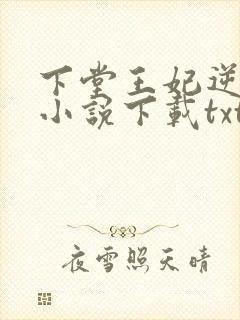 下堂王妃逆
小說下載txt
夜雪照天晴